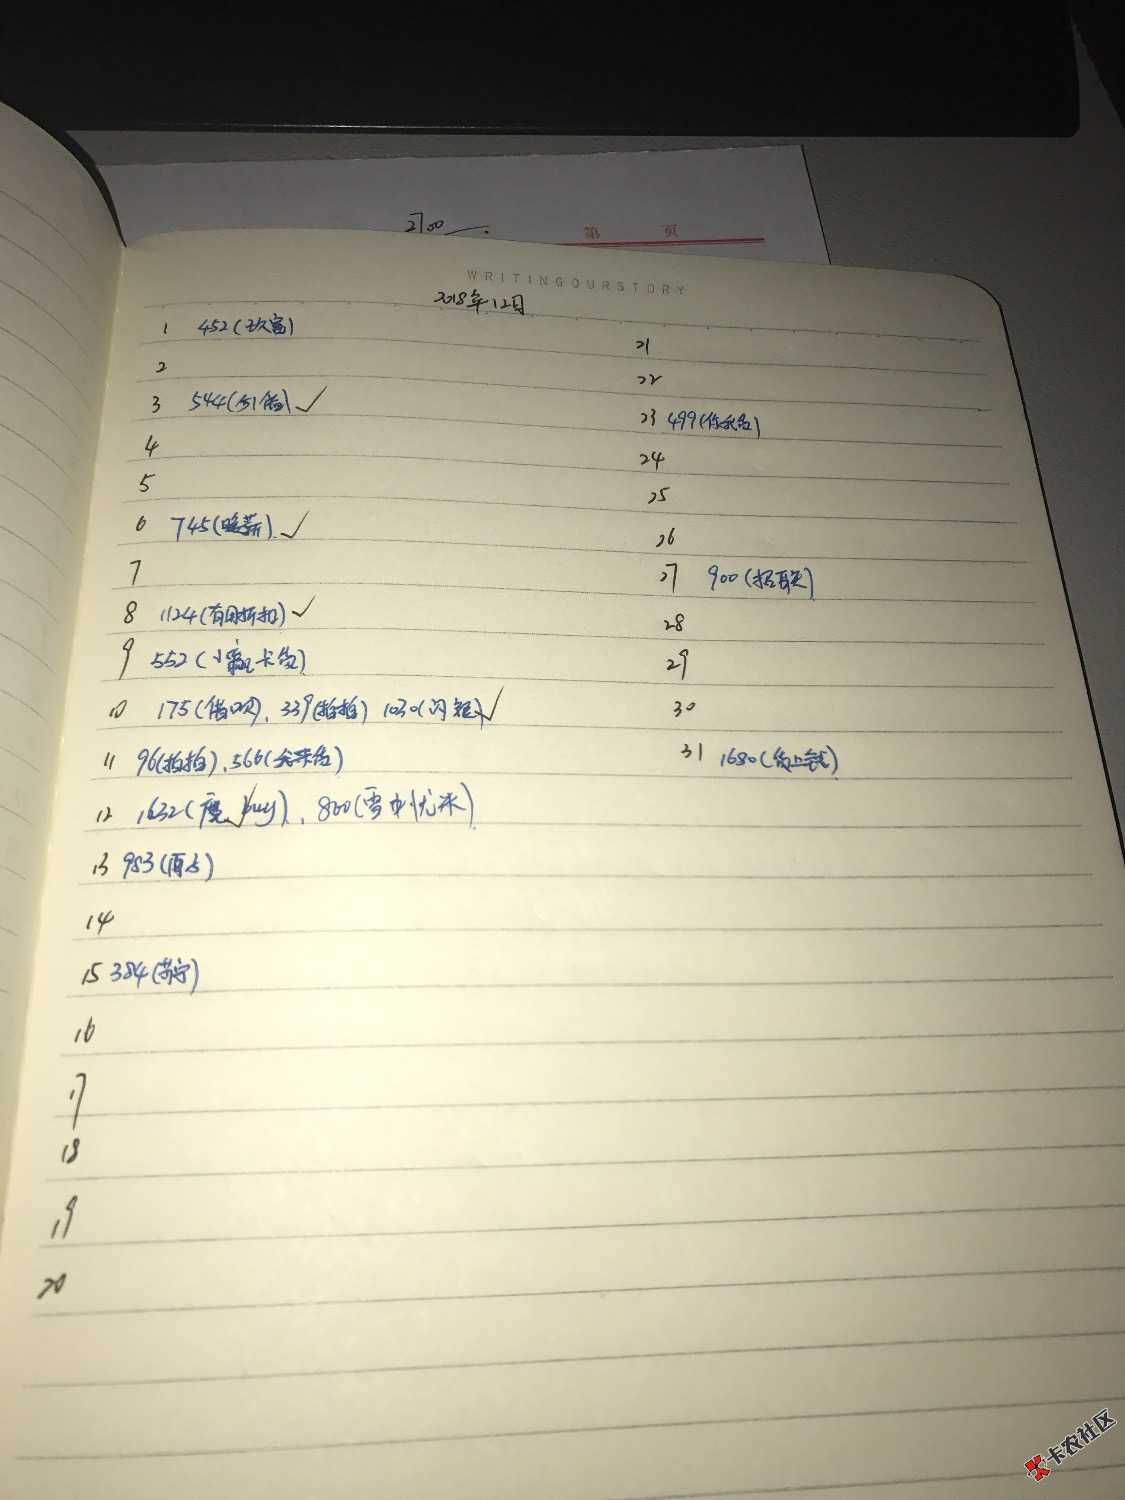 2700
第 页
WRITINGOURSTORY
2018年12月
1 452(玖富)
2
3 544(分期) ✓
4
5
6 745(嗨薪) ✓
7
8 1124(有用折扣) ✓
9 552(小赢卡贷)
10 175(借呗), 339(拍拍) 1030(闪银) ✓
11 96(拍拍), 566(去来贷)
12 1632(魔buy) ✓, 800(雪中优米)
13 983(有)
14
15 384(苏宁)
16
17
18
19
20
21
22
23 499(你我贷)
24
25
26
27 900(招联)
28
29
30
31 1680(马上钱)
卡农社区